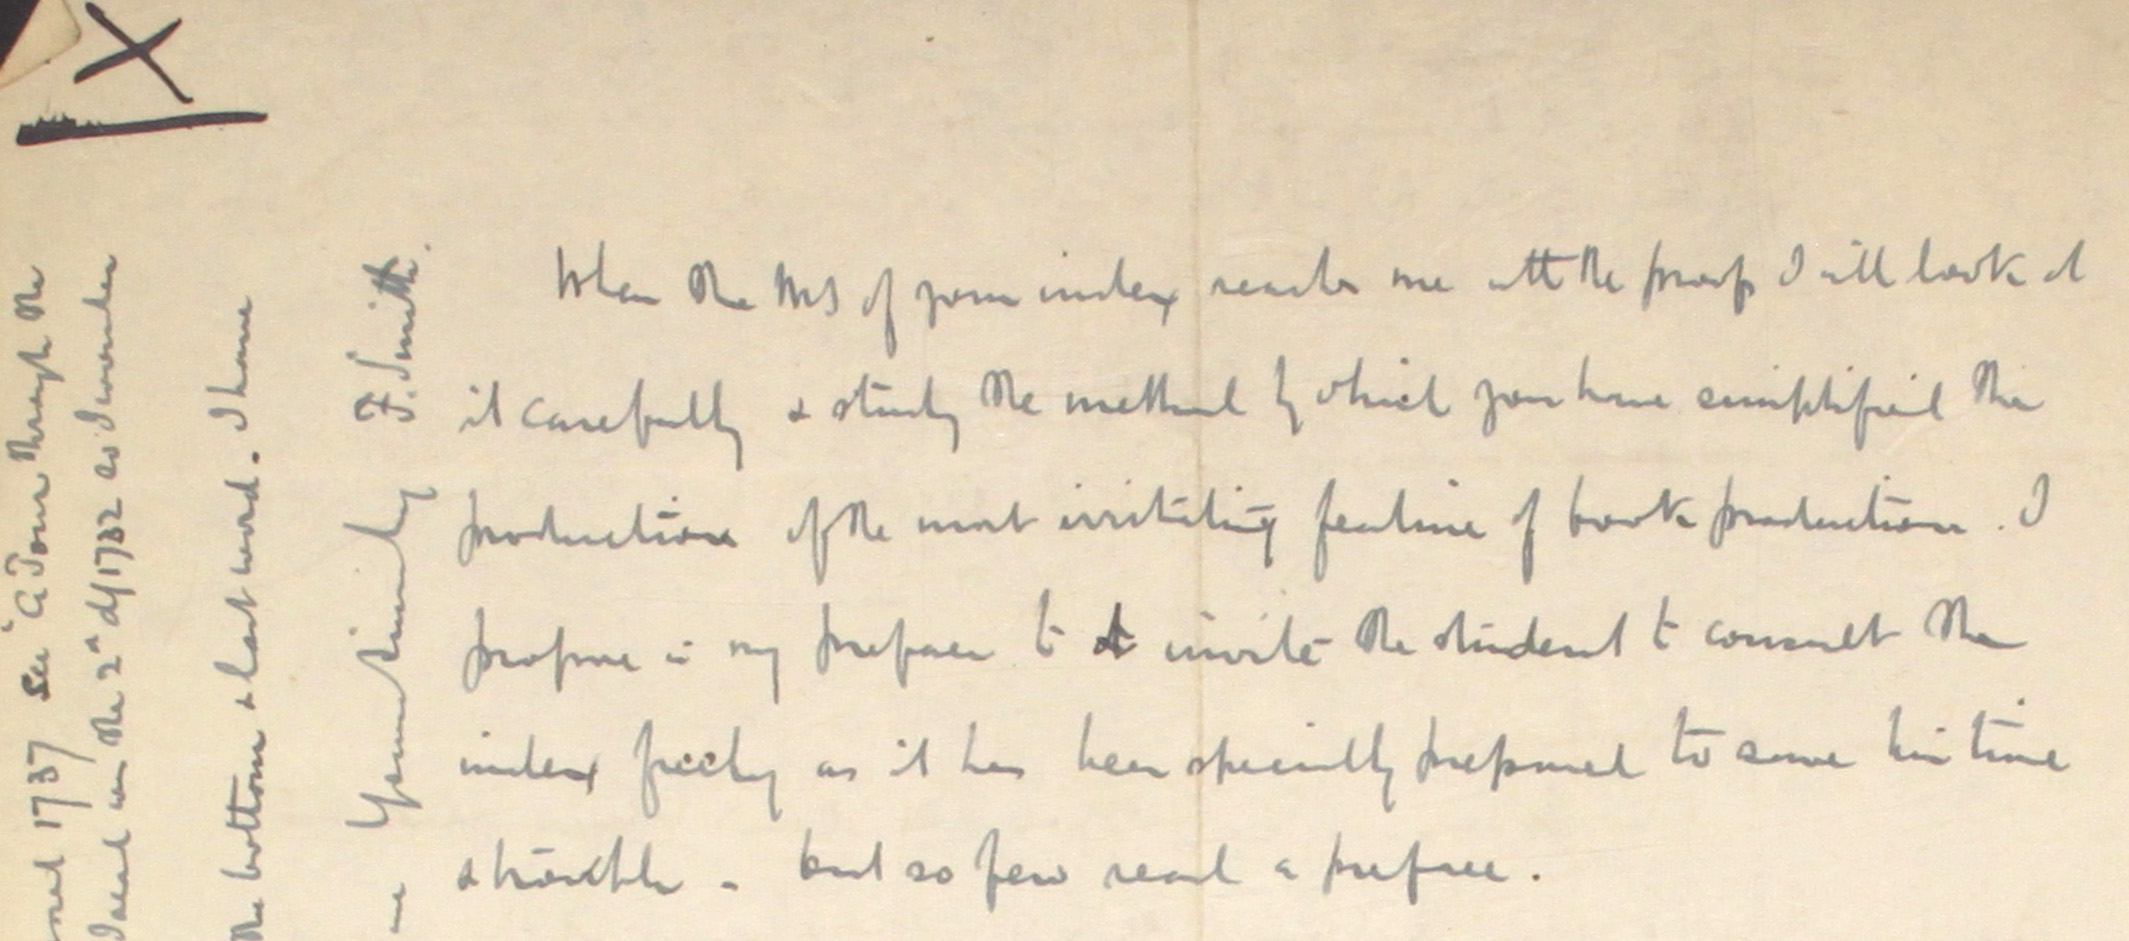 X
When the MS of your index reaches me with the proofs I will look at
it carefully & study the method by which you have simplified the
production of the most irritating feature of book production. I
propose in my preface to invite the student to consult the
index freely as it has been specially prepared to save his time
& trouble - but so few read a preface.
1737 See "A Tour through the
the 2nd of 1732 as I wonder
the bottom & last word. I have
Yours sincerely F. Smith.